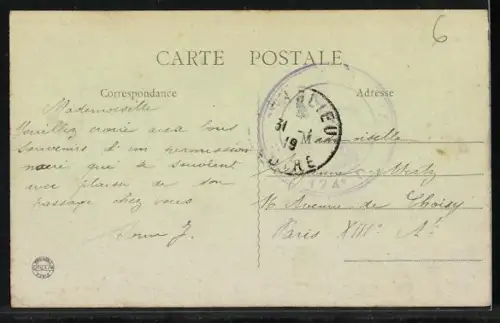 6
CARTE POSTALE
Correspondance
Adresse
Mademoiselle
Veuillez croire aux bons
souvenirs d'un permission
naire qui se souvient
avec plaisir de son
passage chez vous
CHARLIEU
31
19
LOIRE
Mademoiselle
16 Avenue de Choisy
Paris XIIIe